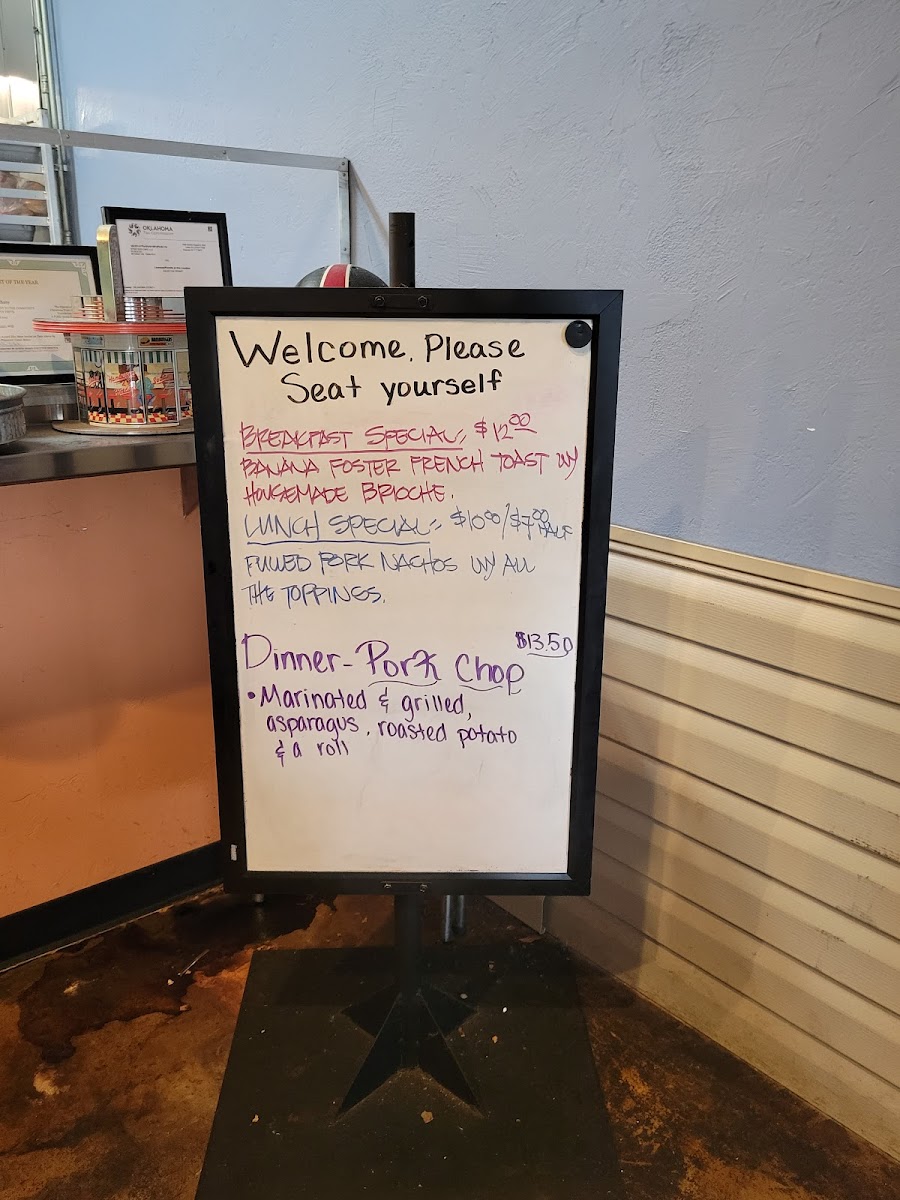 OKLAHOMA
T OF THE YEAR
Welcome. Please
Seat yourself
BREAKFAST SPECIAL: $12.00
BANANA FOSTER FRENCH TOAST W/
HOUSEMADE BRIOCHE.
LUNCH SPECIAL: $10.00/$7.00 HALF
PULLED PORK NACHOS W/ ALL
THE TOPPINGS.
$13.50
Dinner - Pork Chop
• Marinated & grilled,
asparagus, roasted potato
& a roll